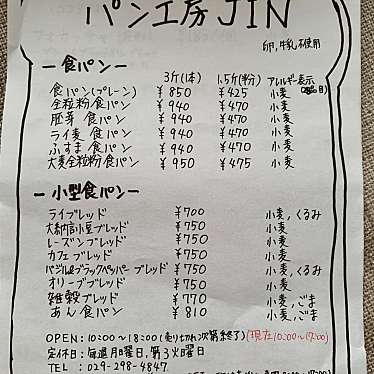 パン工房JIN
卵,牛乳不使用
ー食パンー
3斤(1本) 1.5斤(半分) アレルギー表示
食パン(プレーン) ¥850 ¥425 小麦
全粒粉食パン ¥940 ¥470 小麦
胚芽 食パン ¥940 ¥470 小麦
ライ麦 食パン ¥940 ¥470 小麦
ふすま 食パン ¥940 ¥470 小麦
大麦全粒粉食パン ¥950 ¥475 小麦
ー小型食パンー
ライブレッド ¥700 小麦,くるみ
大納言小豆ブレッド ¥750 小麦
レーズンブレッド ¥750 小麦
カフェブレッド ¥750 小麦
バジル&ブラックペッパーブレッド ¥750 小麦,くるみ
オリーブブレッド ¥750 小麦
雑穀ブレッド ¥770 小麦,ごま
あん食パン ¥810 小麦,ごま
OPEN:10:00~18:00(売り切れ次第終了)(現在10:00~17:00)
定休日:毎週月曜日,第3火曜日
TEL:029-298-4847